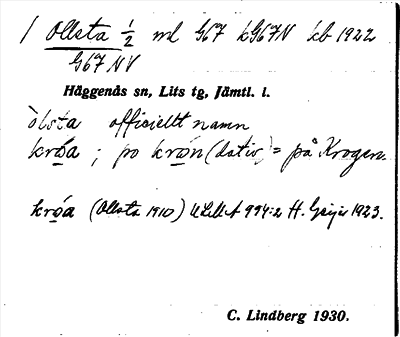 1 Ollsta ½ ml G67 kG67N kb 1922
G67 NV
Häggenås sn, Lits tg, Jämtl. l.
òlsta officiellt namn
króa ; po krón (dativ) = på Krogen.
króa (Ollsta 1910) ULLA 994:2 H. Geijer 1923.
C. Lindberg 1930.